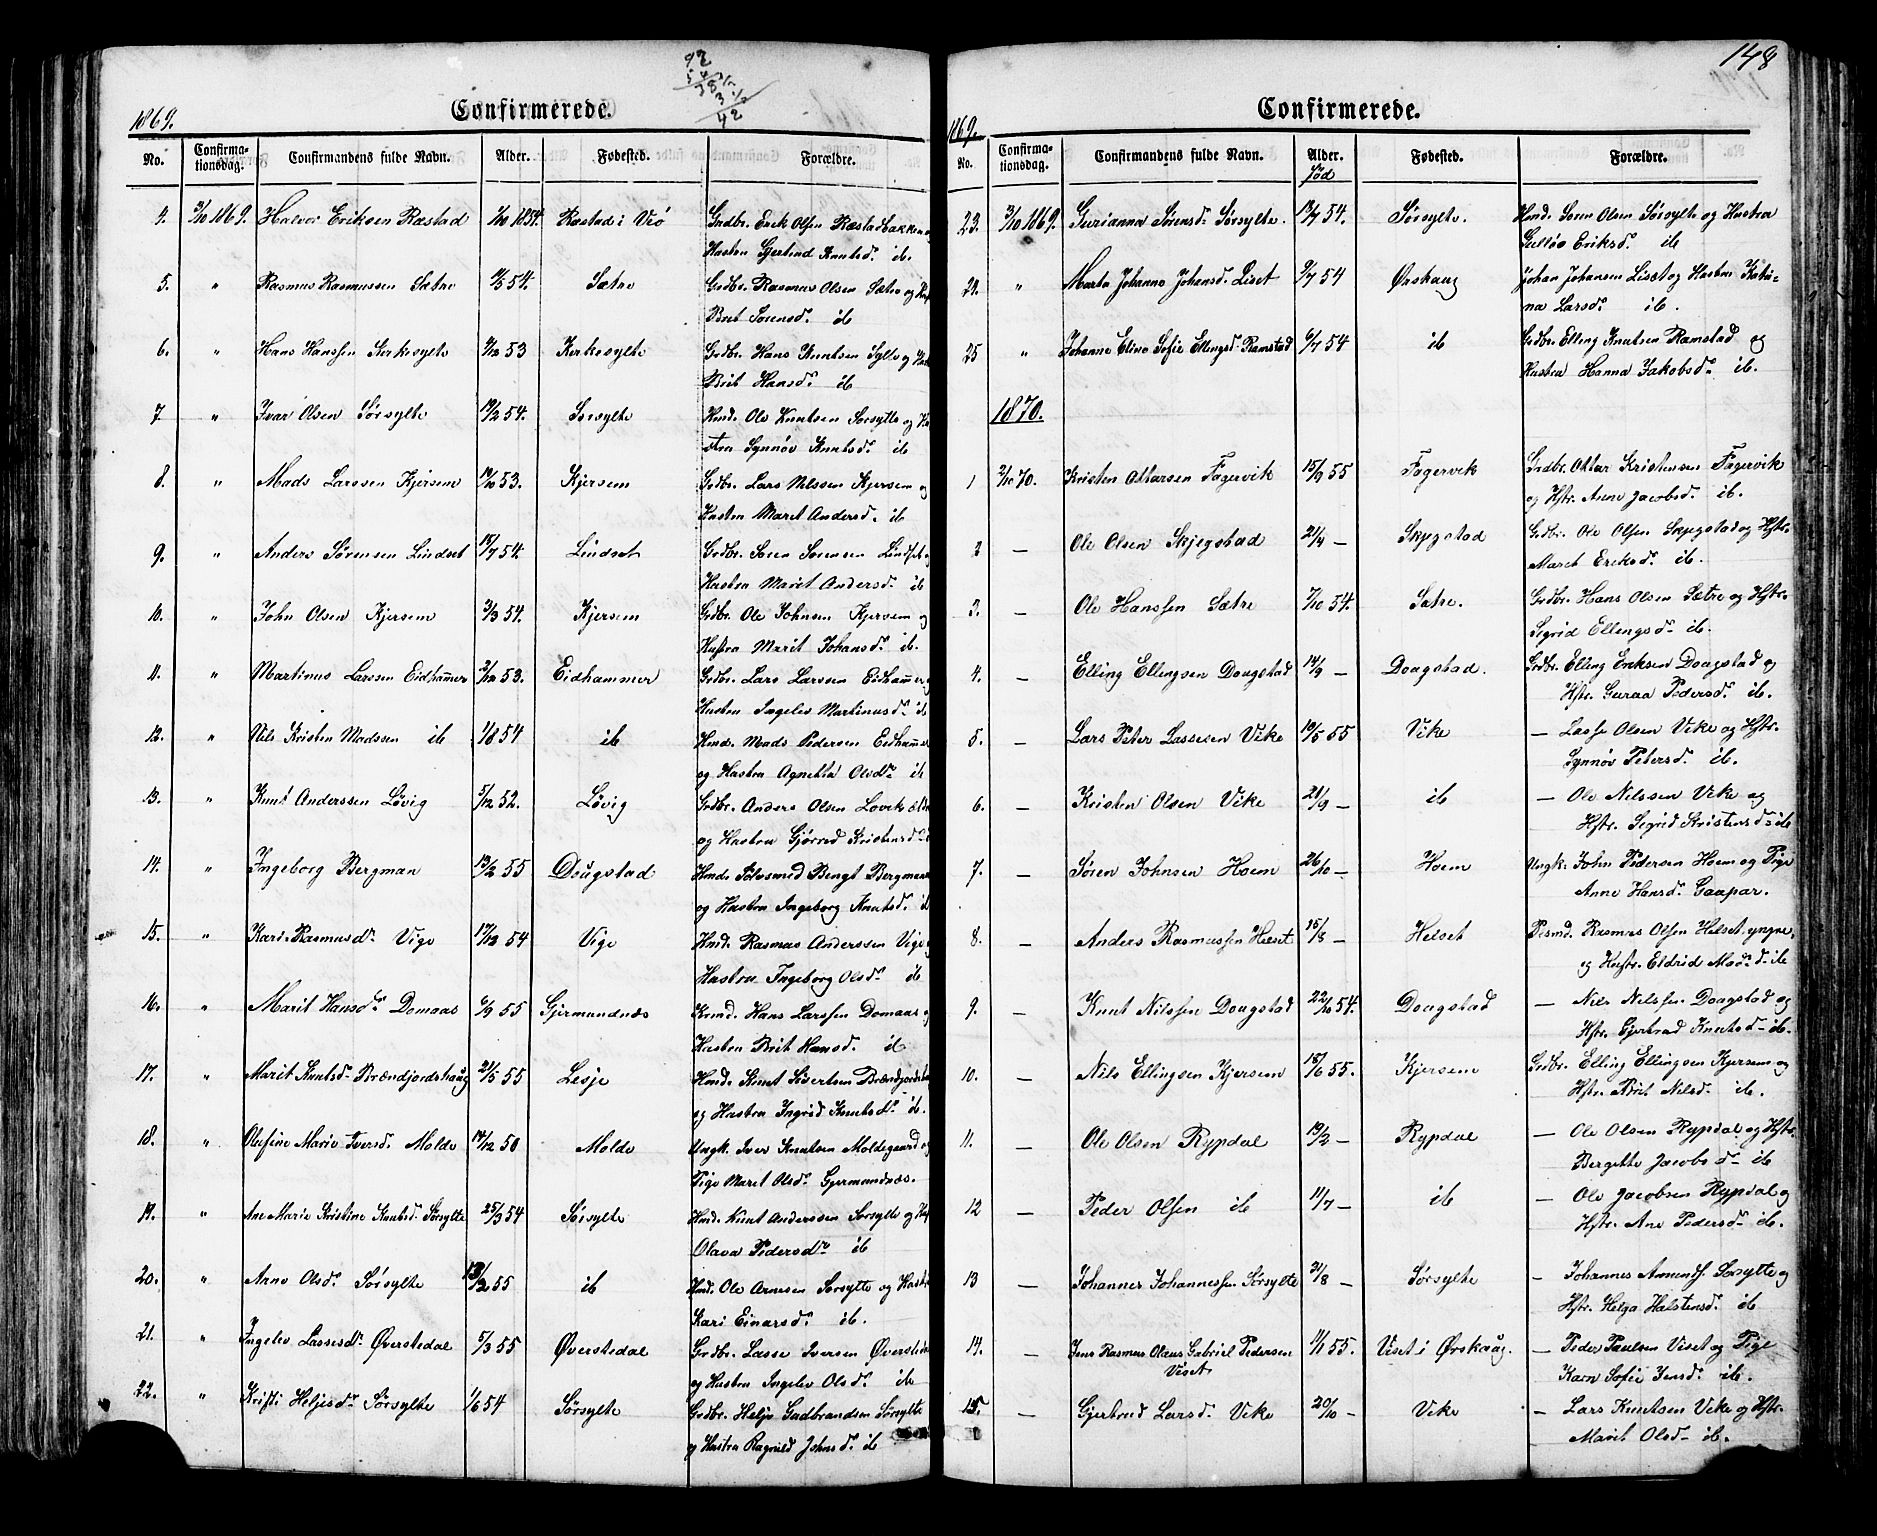 1869.
Confirmerede.
No. Confirmationsdag. Confirmandens fulde Navn. Alder. Fødested. Forældre.
4. 3/10 1869. Halvor Eriksen Rastad 1/10 1854. Rastad i Veø Grdbr. Erik Olsen Ræstadbakken
Hustru Gjertrud Knutsd. ib.
5. " Rasmus Rasmussen Sætre 54. Sætre Grdbr. Rasmus Olsen Sætre og
Brit Sørensd. ib
6. " Hans Hanssen Kirkesylte 53 Kirkesylte Grdbr. Hans Knutsen Sylte og
Brit Hansd. ib
7. " Ivar Olsen Sørsylte 54. Sørsylte Hmd. Ole Knutsen Sørsylte og
Synnøv Knutsd. ib
8. " Mads Larssen Kjersem 53. Kjersem Grdbr. Lars Nilssen Kjersem og
Hustru Marit Andersd. ib
9. " Anders Sørensen Lindset 54. Lindset Grdbr. Søren Sørensen Lindset og
Hustru Marit Andersd. ib
10. " John Olsen Kjersem 3/3 54. Kjersem Grdbr. Ole Johnsen Kjersem og
Hustru Marit Johansd. ib.
11. " Martinus Larssen Eidhammer 2/12 53. Eidhammer Grdbr. Lars Larssen Eidhammer
Hustru Ingelev Martinusd. ib
12. " Nils Kristen Madssen ib 1/8 54 ib Hmd. Mads Pedersen Eidhammer
og Hustru Agnetha Olsd. ib
13. " Knut Anderssen Løvig 5/12 52. Løvig Grdbr. Anders Olsen
og Hustru Gjørred Kristensd.
14. " Ingeborg Bergman 55 Dougstad Hmd. Bengt Bergman
og Hustru Ingeborg Knutsd. ib
15. " Kari Rasmusd. Vige 54 Vige Hmd. Rasmus Anderssen Vige
Hustru Ingeborg Olsd. ib
16. " Marit Hansd. Domaas 6/9 55 Gjermundnæs Hans Larssen Domaas
Hustru Brit Hansd. ib
17. " Marit Knutsd. Brændjordshaug 21/5 55 Lesje Hmd. Knut Sivertsen
og Hustru Ingrid Knutsd. ib.
18. " Olufine Marie Iversd. Molde 50 Molde Ungk. Iver Knutsen Moldegaard og
Pige Marit Olsd. Gjermundnæs.
19. " Ane Marie Kristine Knutsd. Sørsylte 25/3 54 Sørsylte Hmd. Knut Anderssen Sørsylte og
Olava Pedersd. ib
20. " Arne Olsd. Sørsylte 13/2 55 ib Hmd. Ole Arnesen Sørsylte og
Kari Einarsd. ib.
21. " Ingelev Lassesd. Øverstedal 5/3 55 Øverstedal Grdbr. Lasse Iversen
og Hustru Ingelev Olsd. ib
22. " Kristi Heljesd. Sørsylte 1/6 54 Sørsylte Grdbr. Helje Gudbrandsen Sørsylte
og Hustru Ragnild Johnsd. ib
148
1869.
Confirmerede.
No. Confirmationsdag. Confirmandens fulde Navn. Alder. Fødested. Forældre.
fød
23. 3/10 1869. Gurianna Sørensd. Sørsylte. 54. Sørsylte. Hmd. Søren Olsen Sørsylte og Hustru
Eriksd. ib
24. " Marta Johanna Johansd. Liset 9/7 54 Ørskaug Johan Johansen Liset og Hustru
Larsd. ib.
25 " Johanne Eline Sofie Ellingsd. Ramstad 6/7 54 ib Grdbr. Elling Knutsen Ramstad og
Hustru Hanna Jakobsd. ib.
1870.
1 2/10 70. Kristen Ottarsen Fagervik 15/9 55 Fagervik Grdbr. Ottar Kristensen Fagervik
og Hstr. Anne Jacobsd. ib.
2 — Ole Olsen Skjegstad 21/4 — Skjegstad Grdbr. Ole Olsen Skjegstad og Hstr.
Marit Eriksd. ib.
3. — Ole Hanssen Sætre 7/10 54. Sætre. Grdbr. Hans Olsen Sætre og Hstr.
Sigrid Ellingsd. ib.
4. — Elling Ellingsen Dougstad 14/9 — Dougstad. Grdbr. Elling Eriksen Dougstad og
Hstr. Guraa Pedersd. ib.
5. — Lars Peter Lassesen Vike 19/5 55 Vike — Lasse Olsen Vike og Hstr.
Synnøv Petersd. ib.
6. — Kristen Olsen Vike 21/9 — ib — Ole Nilssen Vike og
Hstr. Sigrid Kristensd. ib
7. — Søren Johnsen Hoem 26/10 — Hoem Ungk. John Pedersen Hoem og Pige
Anne Hansd. Gaapar.
8. — Anders Rasmussen Helset 15/8 — Helset Rasmus Olsen Helset yngre,
og Hustr. Eldrid Madsd. ib
9. — Knut Nilssen Dougstad 22/10 54. Dougstad — Nils Nilssen Dougstad og
Hstr. Gjertrud Knutsd. ib.
10. — Nils Ellingsen Kjersem 18/6 55. Kjersem Grdbr. Elling Ellingsen Kjersem og
Hstr. Brit Nilsd. ib.
11. — Ole Olsen Rypdal 19/2 — Rypdal — Ole Olsen Rypdal og Hstr.
Bergitte Jacobsd. ib
12 — Peder Olsen ib 11/7 — ib — Ole Jacobsen Rypdal og
Hstr. Ane Pedersd. ib.
13 — Johannes Johannessen Sørsylte 21/8 — Sørsylte — Johannes Amunds. Sørsylte og
Hstr. Helga Halstensd. ib
14. — Jens Rasmus Olaus Gabriel Pedersen 11/1 55. Viset i Ørskaug. — Peder Paulsen Viset og Pige
Viset Karn Sofie Jensd. ib.
15. — Gjertrud Larsd. Vike 20/10 — Vike — Lars Knutsen Vike og Hstr.
Marit Olsd. ib.